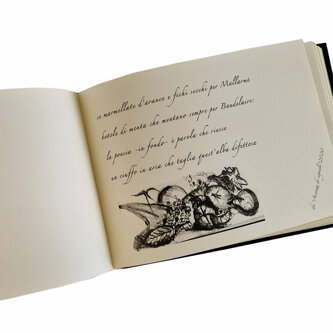 se marmellate d'arance e fichi secchi per Mallarmè
botole di menta che mentano sempre per Baudelaire:
la poesia - in fondo - è parola che riesce
un ciuffo in aria che taglia quest'alba difettosa